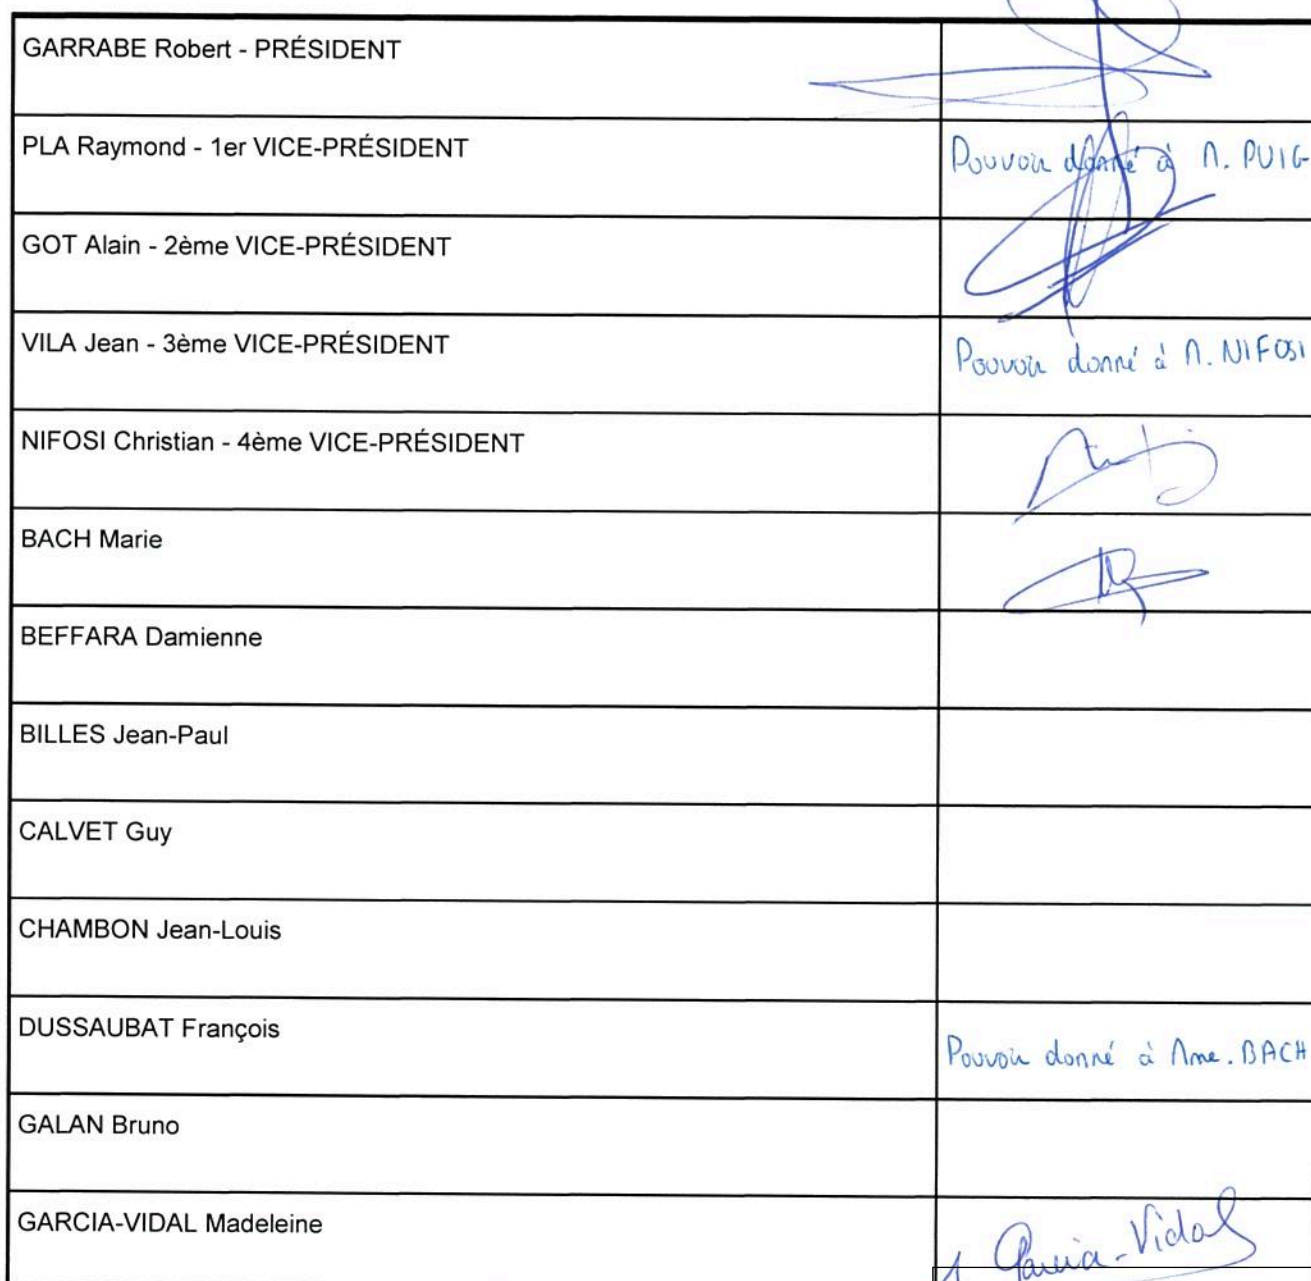 GARRABE Robert - PRÉSIDENT
PLA Raymond - 1er VICE-PRÉSIDENT
Pouvoir donné à M. PUIG
GOT Alain - 2ème VICE-PRÉSIDENT
VILA Jean - 3ème VICE-PRÉSIDENT
Pouvoir donné à M. NIFOSI
NIFOSI Christian - 4ème VICE-PRÉSIDENT
BACH Marie
BEFFARA Damienne
BILLES Jean-Paul
CALVET Guy
CHAMBON Jean-Louis
DUSSAUBAT François
Pouvoir donné à Mme. BACH
GALAN Bruno
GARCIA-VIDAL Madeleine
Garcia-Vidal